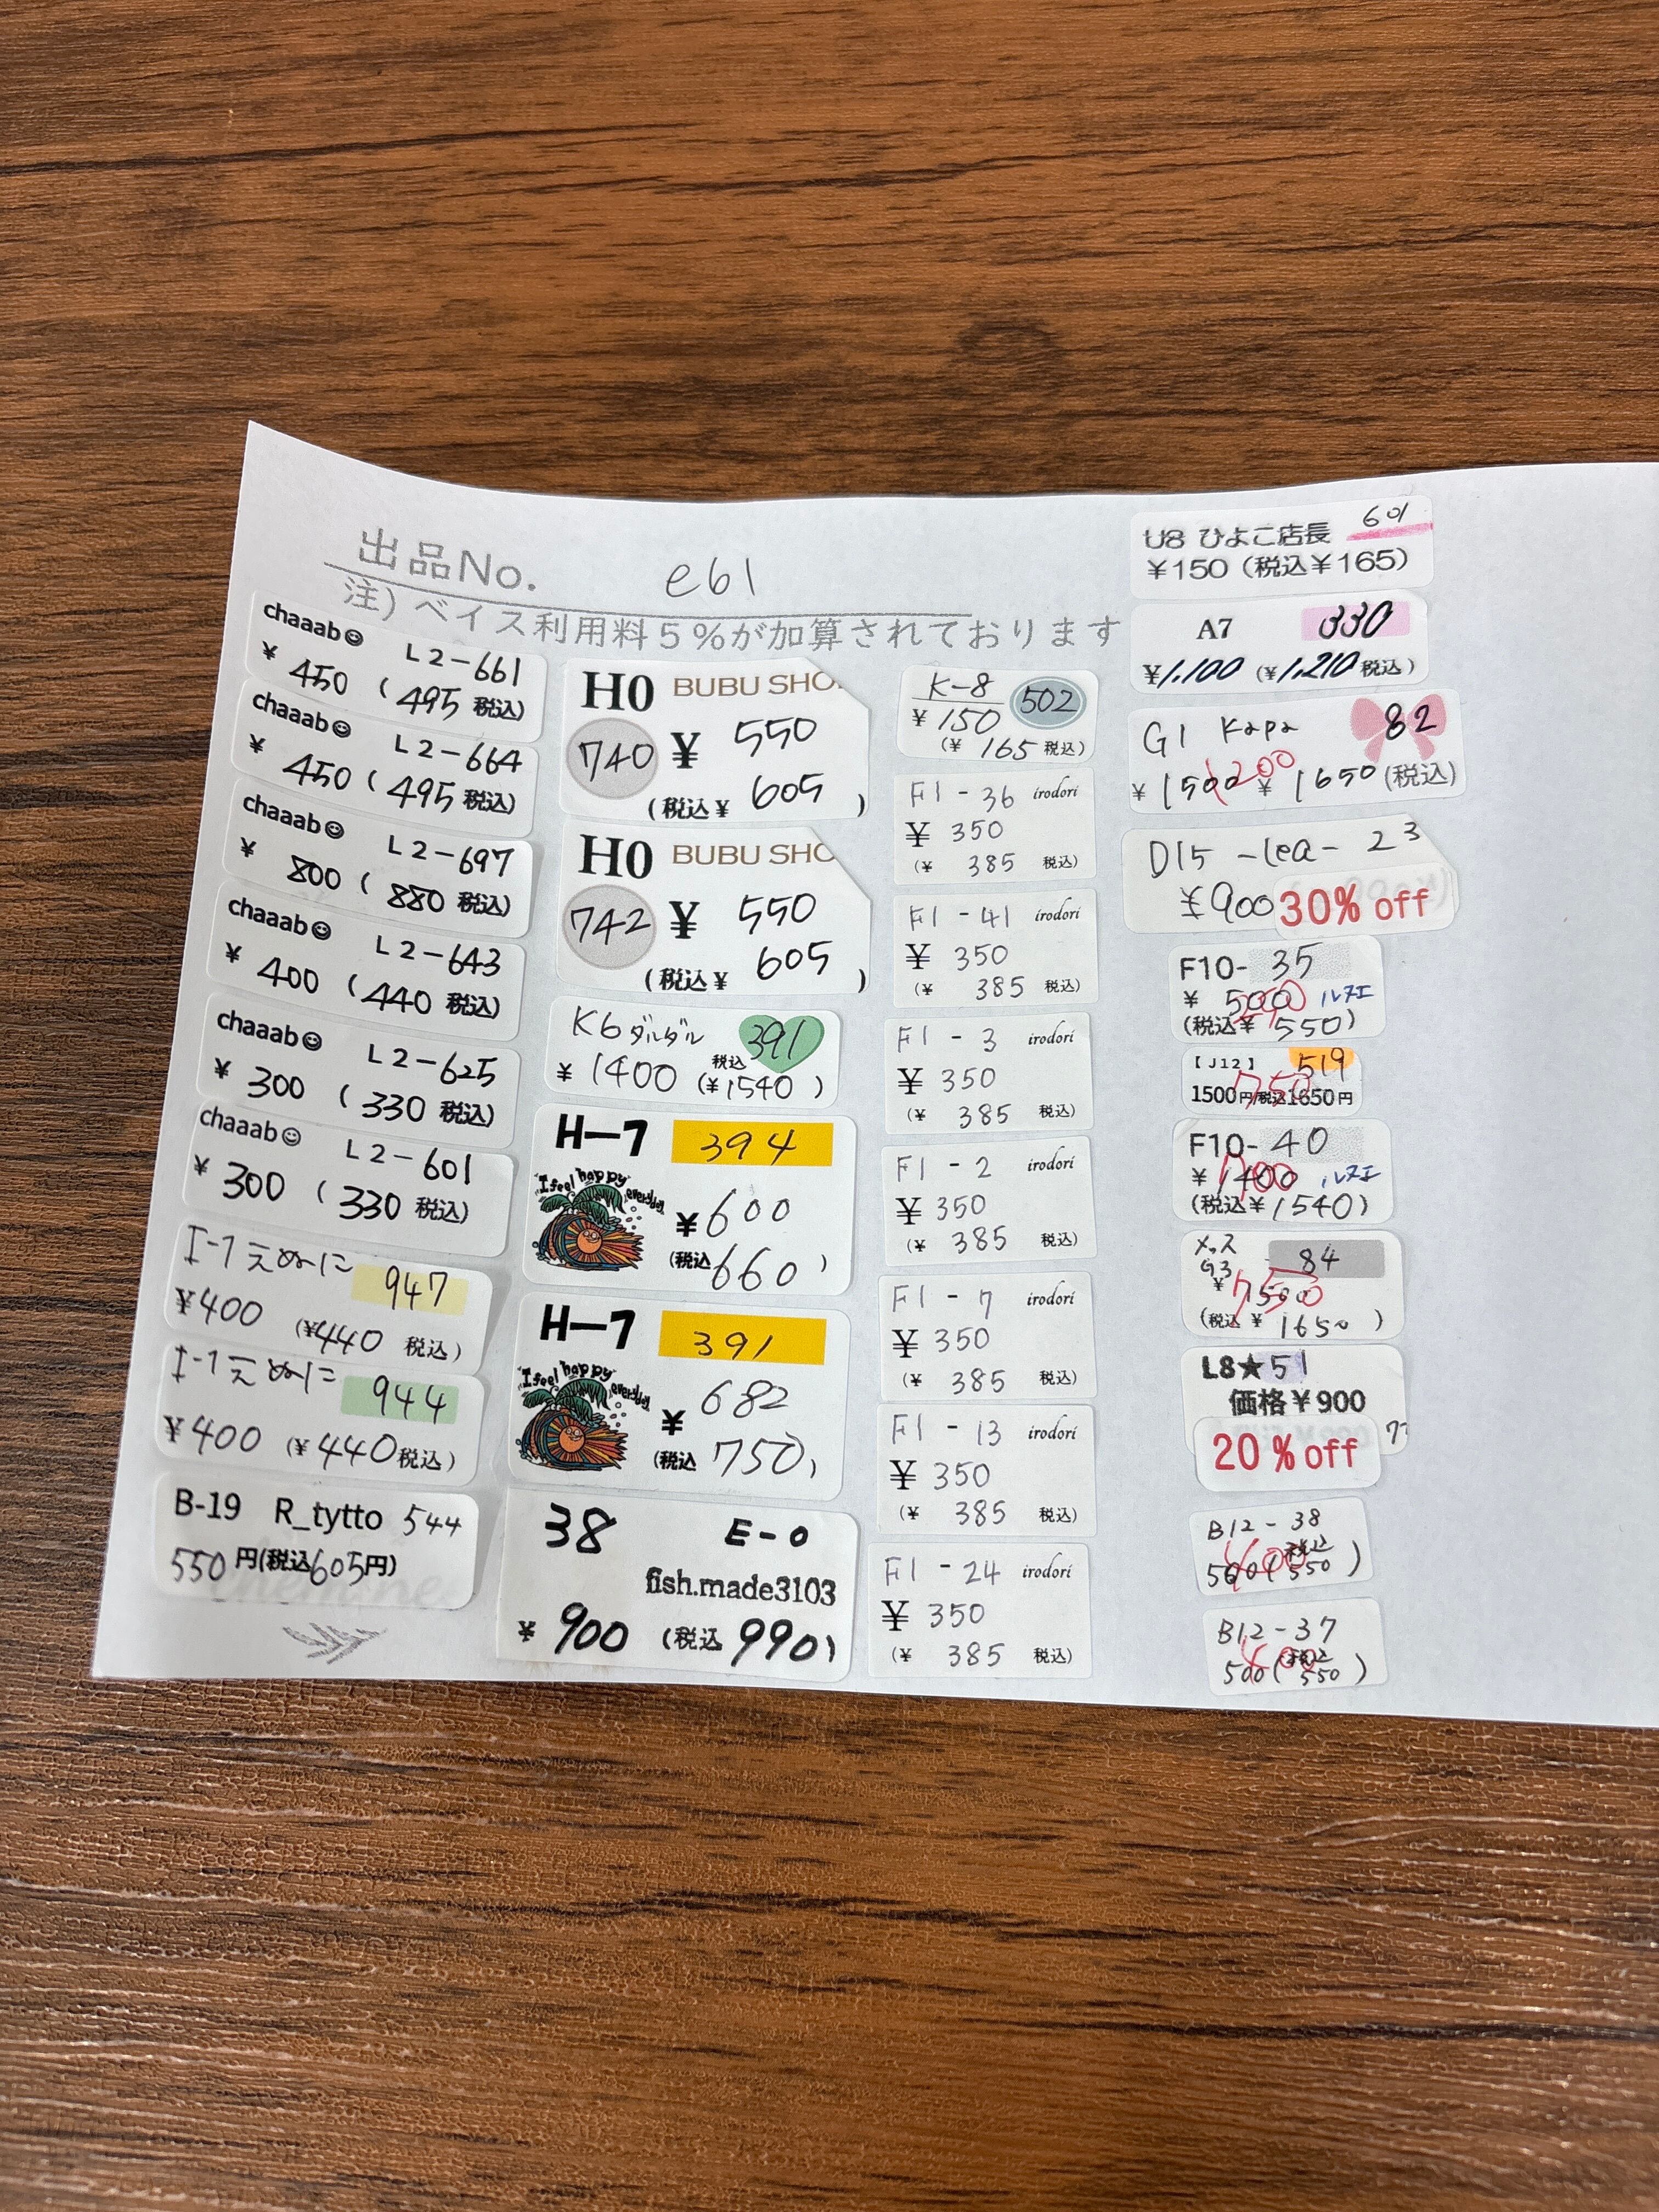 出品No. e61
注)ベイス利用料5%が加算されております
chaaab
L2-661
¥ 450 (495 税込)
chaaab
L2-664
¥ 450 (495 税込)
chaaab
L2-697
¥ 800 (880 税込)
chaaab
L2-643
¥ 400 (440 税込)
chaaab
L2-625
¥ 300 (330 税込)
chaaab
L2-601
¥ 300 (330 税込)
I-1えぬに 947
¥400 (¥440 税込)
I-1えぬに 944
¥400 (¥440税込)
B-19 R_tytto 544
550円(税込605円)
H0 BUBU SHO
740 ¥ 550
(税込¥ 605 )
H0 BUBU SHO
742 ¥ 550
(税込¥ 605 )
K6ダルダル 391
¥ 1400 税込(¥1540 )
H-7 394
"I feel happy everyday"
¥600
(税込660 )
H-7 391
"I feel happy everyday"
¥ 682
(税込 750)
38 E-0
fish.made3103
¥ 900 (税込 990)
K-8 502
¥ 150
(¥ 165 税込)
F1 - 36 irodori
¥ 350
(¥ 385 税込)
F1 - 41 irodori
¥ 350
(¥ 385 税込)
F1 - 3 irodori
¥ 350
(¥ 385 税込)
F1 - 2 irodori
¥ 350
(¥ 385 税込)
F1 - 7 irodori
¥ 350
(¥ 385 税込)
F1 - 13 irodori
¥ 350
(¥ 385 税込)
F1 - 24 irodori
¥ 350
(¥ 385 税込)
U8 ひよこ店長 601
¥150(税込¥165)
A7 330
¥1,100 (¥1,210税込)
G1 Kapa 82
¥1500 1200 ¥1650(税込)
D15 -lea- 23
¥900 30% off
F10- 35
¥ 500 ルヌエ
(税込¥ 550)
【J12】 519
1500円/税込1650円
750
F10- 40
¥1400 ルヌエ
(税込¥1540)
700
メッス
G3 84
¥ 1500
750
(税込 ¥ 1650 )
L8★51
価格¥900
20%off
B12-38
500(税込550)
400
B12-37
500(税込550)
400